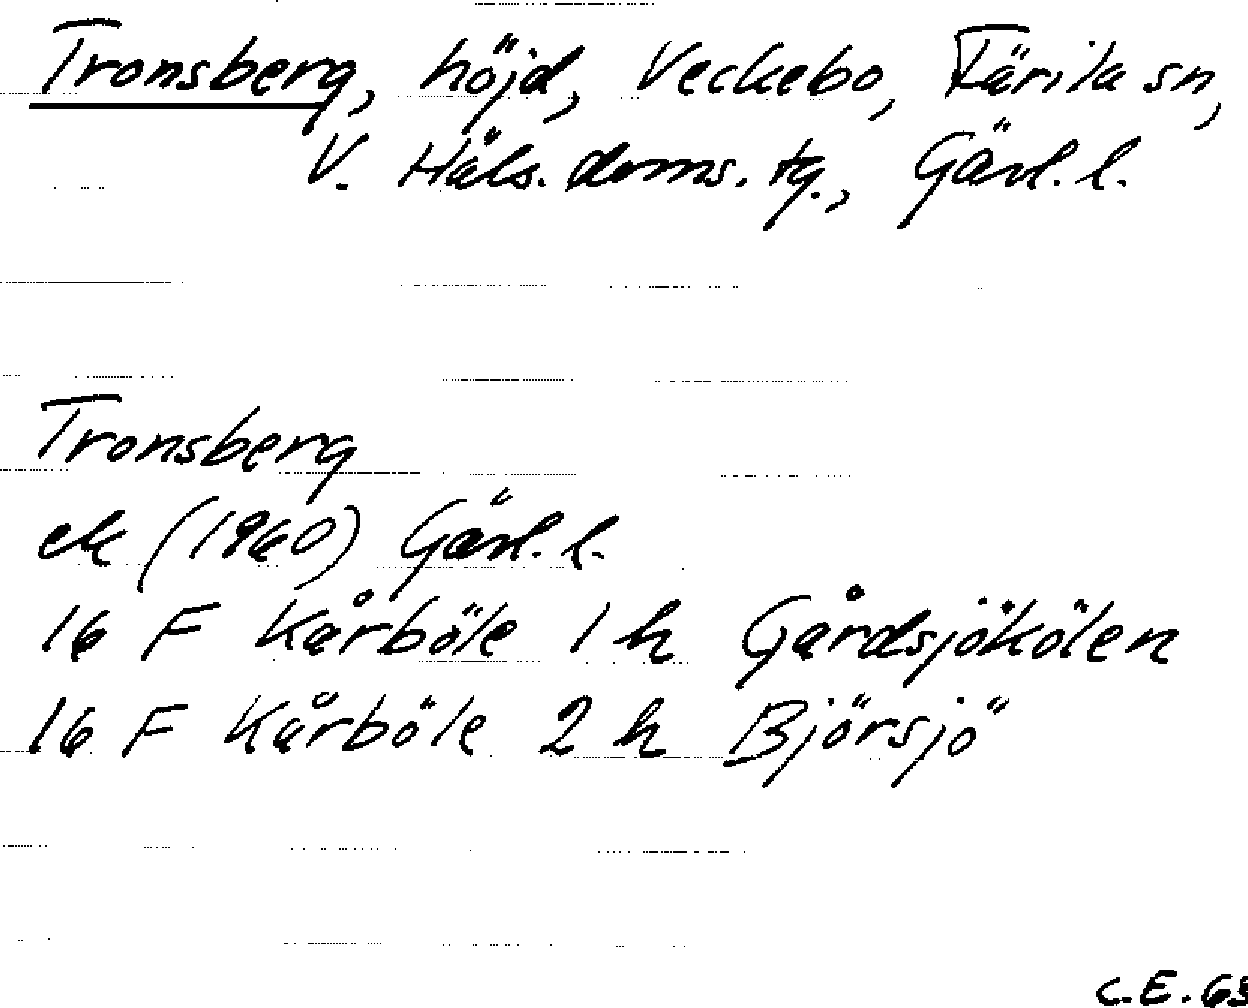 Tronsberg, höjd, Veckebo, Färila sn,
V. Häls. doms. tg., Gävl. l.
Tronsberg
ek (1960) Gävl. l.
16 F Kårböle 1 h Gårdsjökölen
16 F Kårböle 2 h Björsjö
C.E. 65